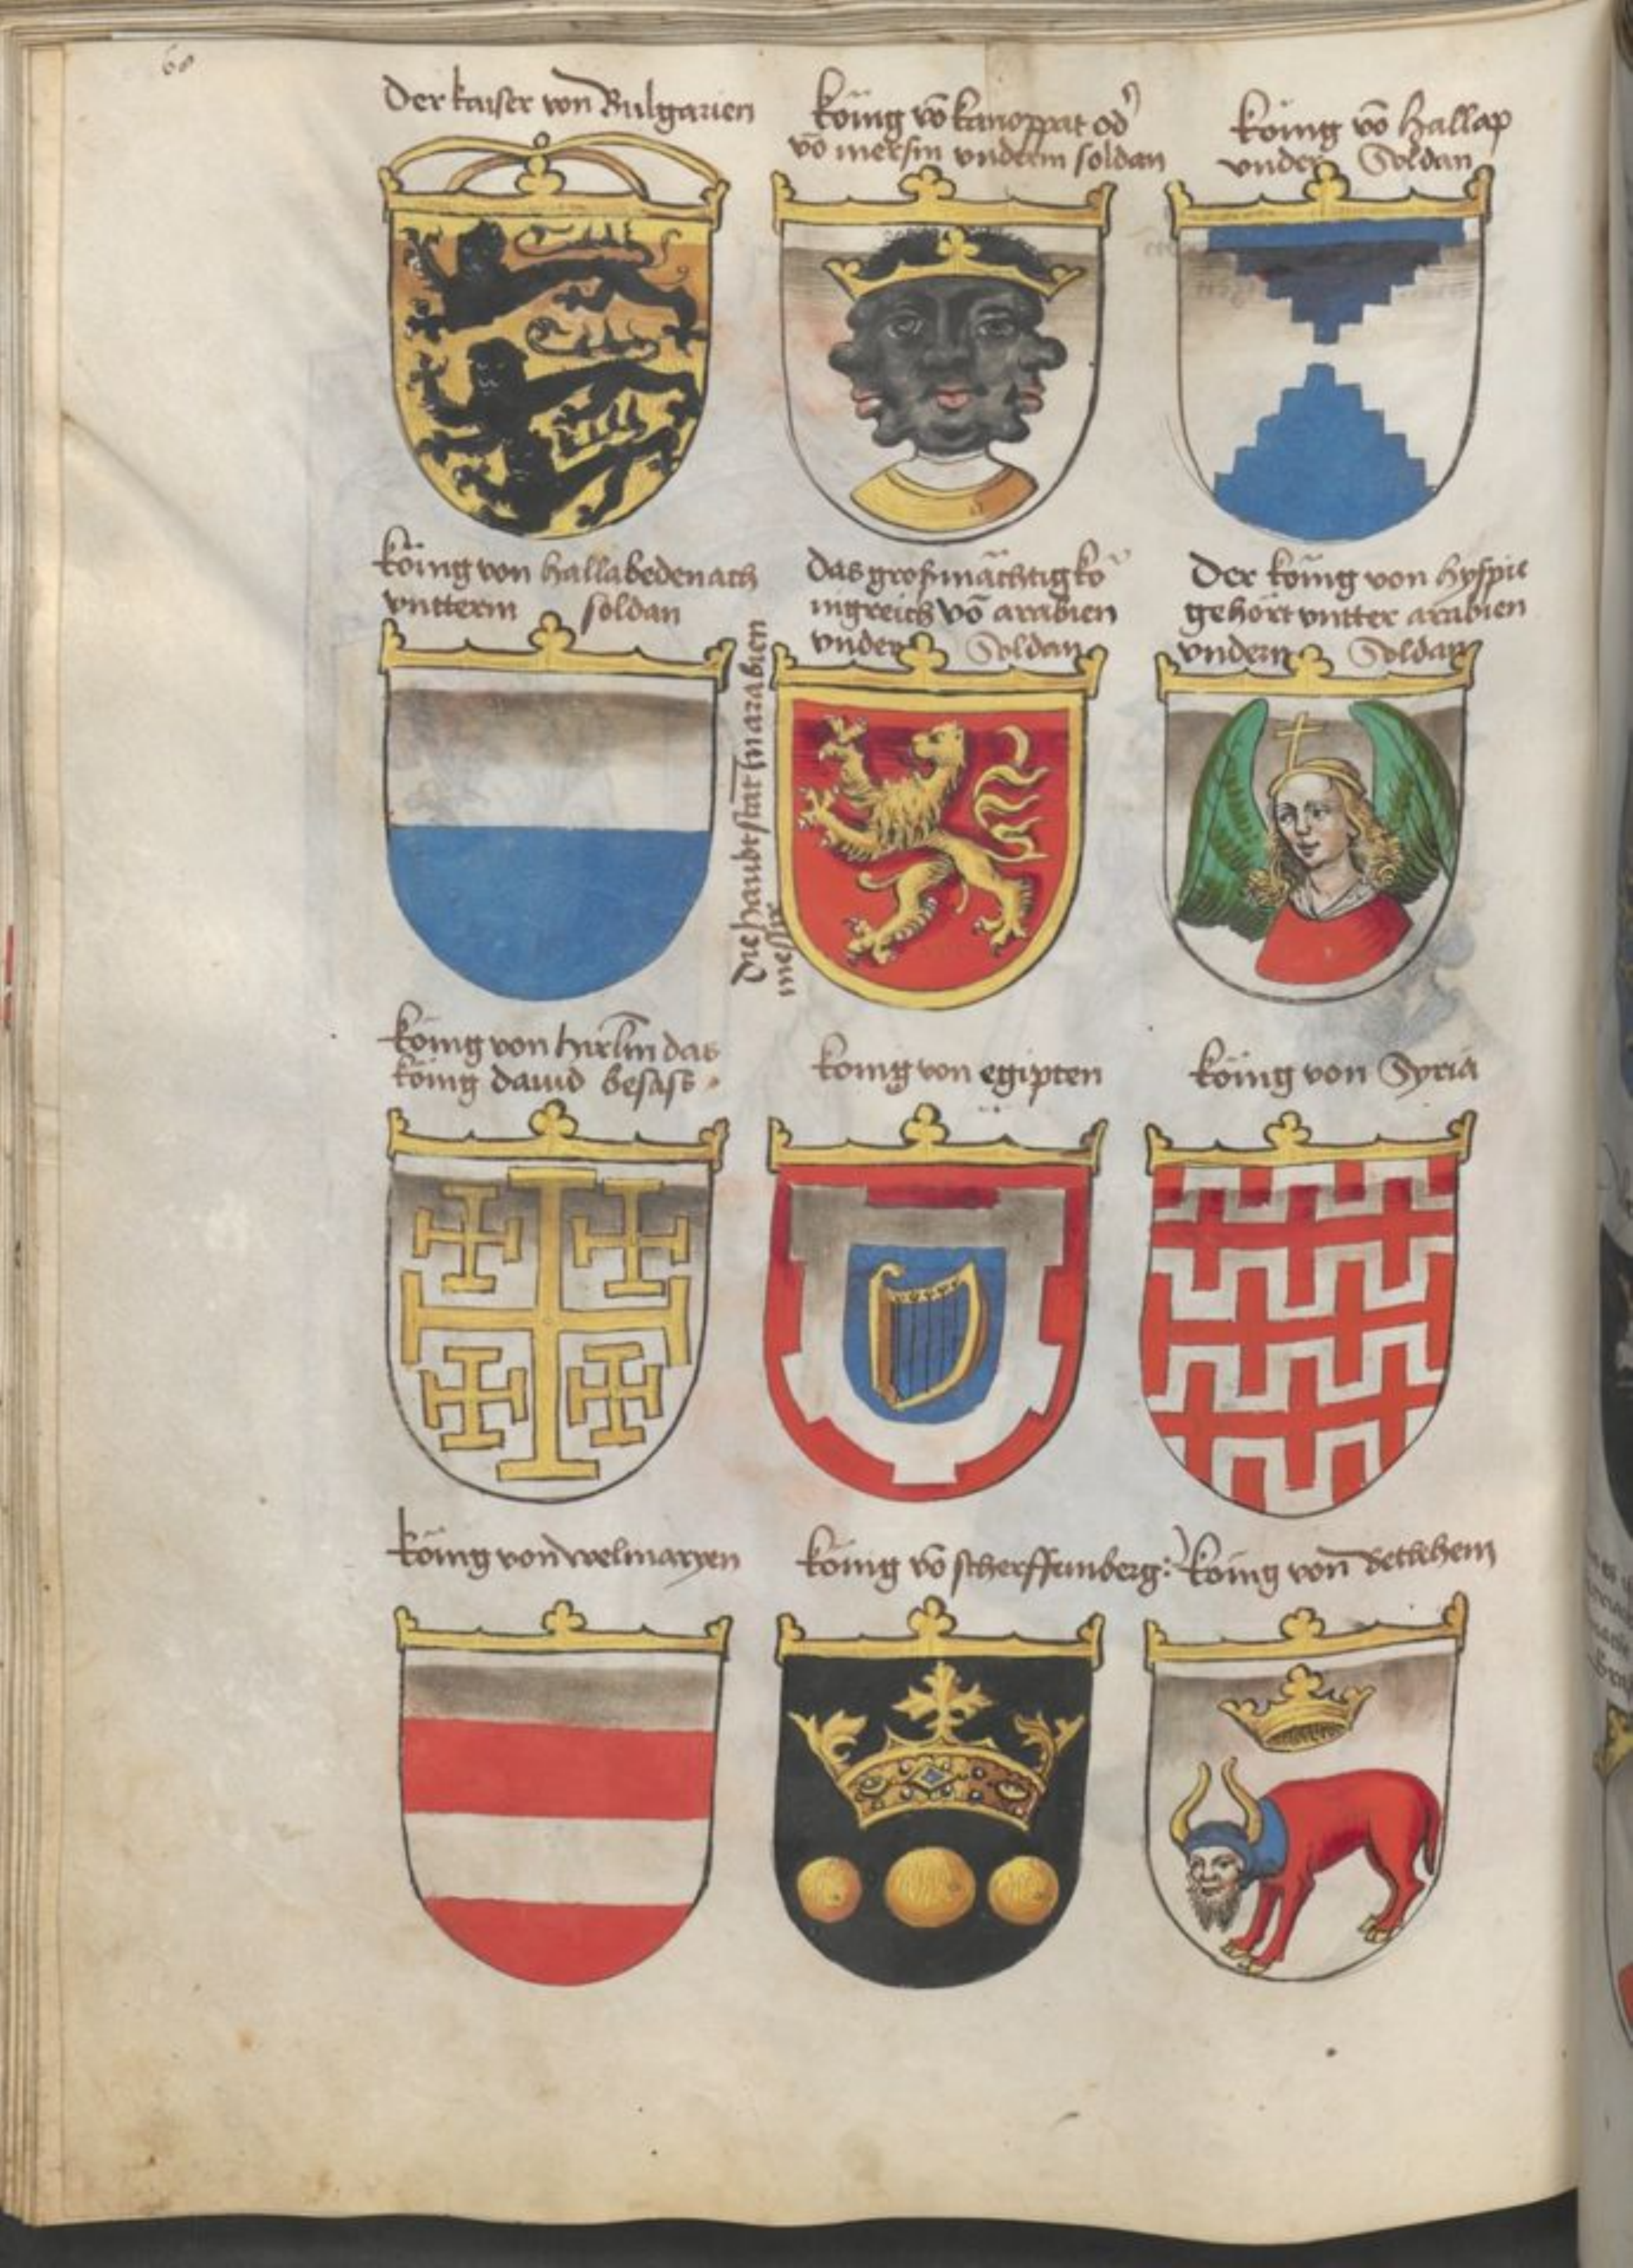 60
Der kaiser von Bulgarien
König vō kanoppat od'
vō mersin vnderm soldan
König vō hallap
vnder Soldan
König von hallabedenach
vntterm soldan
das großmächtig kö
nigreich vō arabien
vnder Soldan
Die haubt statt in arabien
Der König von hyspie
gehört vntter arabien
vnderm Soldan
König von das
König dauid besass
König von egipten
König von Syria
König von welmaryen
König vō scherffemberg
König von bethehem